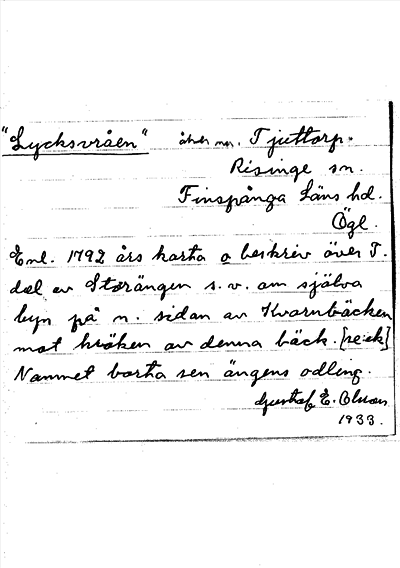 "Lycksvråen" åker m.m. Tjuttorp.
Risinge sn.
Finspånga Läns hd.
Ögl.
Enl. 1792 års karta o beskriv över T.
del av Storängen s.v. om själva
byn på n. sidan av Kvarnbäcken
mot kröken av denna bäck.
Namnet borta sen ängens odling.
Gustaf E. Olsson
1933.